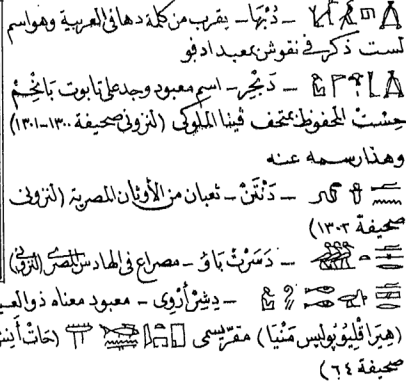 – دُبْهَا – يقرب من كلمة دها فى العربية وهو اسم
لست ذكر فى نقوش بمعبد ادفو
– دَنْجِر – اسم معبود وجد على تابوت پانخِمْ
حِسِتْ المحفوظ بمتحف ڤينا الملوكى (لنزونى صحيفة ١٣٠٠-١٣٠١)
وهذا رسمه عنه
– دَنْتَنْ – ثعبان من الأوثان المصرية (لنزونى
صحيفة ١٣٠٢)
– دَسَرْتْ بَاوْ – مصراع فى الهادس المصرى (لنزونى)
– دِشِرْ أَرْوِى – معبود معناه ذو العين
(هِيَرَاقْلِيُوپُولِيس مَنْيَا) مقرّه يسمى (حَاتْ أَنِسْ
صحيفة ٦٤)